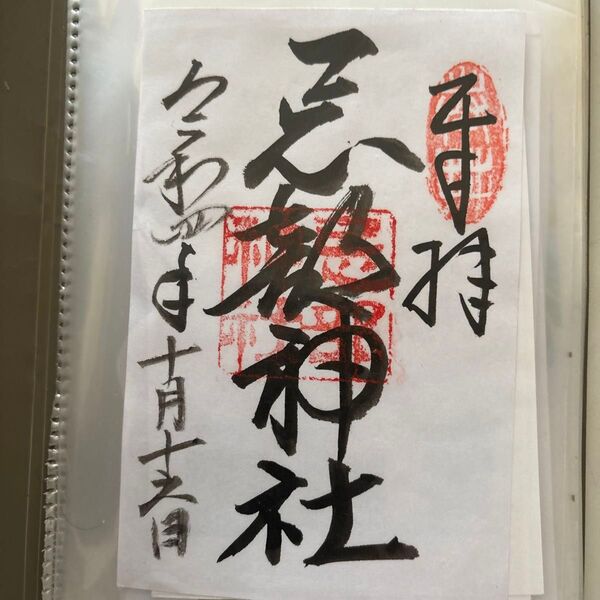 奉拝
忌部神社
令和四年十月十六日